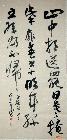 山中相送罷日暮掩
柴扉春草明年綠
王孫歸不歸